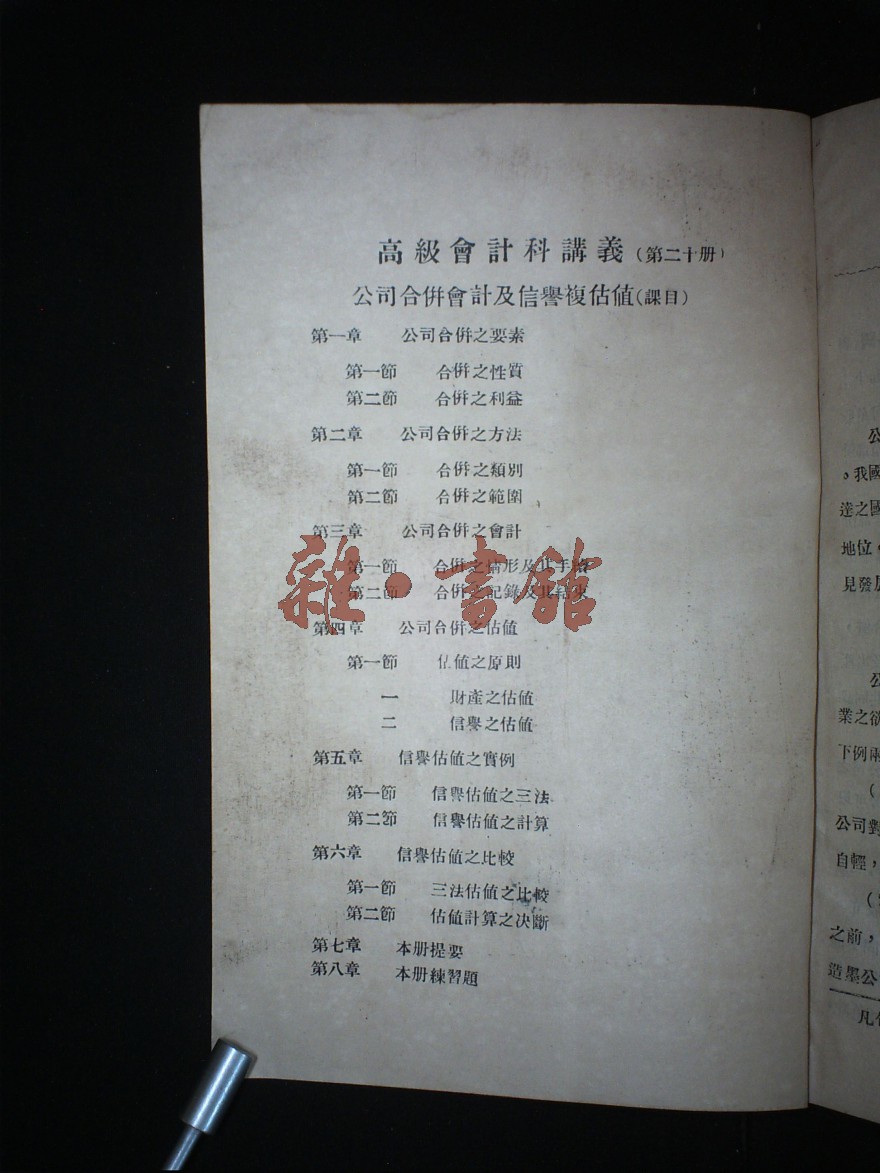 高級會計科講義(第二十册)
公司合併會計及信譽複估值(課目)
第一章 公司合併之要素
第一節 合併之性質
第二節 合併之利益
第二章 公司合併之方法
第一節 合併之類別
第二節 合併之範圍
第三章 公司合併之會計
第一節 合併之情形及其手續
第二節 合併之記錄及其結束
雜·書館
第四章 公司合併之估值
第一節 估值之原則
一 財產之估值
二 信譽之估值
第五章 信譽估值之實例
第一節 信譽估值之三法
第二節 信譽估值之計算
第六章 信譽估值之比較
第一節 三法估值之比較
第二節 估值計算之決斷
第七章 本册提要
第八章 本册練習題
公
。我國
達之國
地位,
見發展
公
業之欲
下例兩
(
公司對
自輕,
(
之前,
造墨公
凡